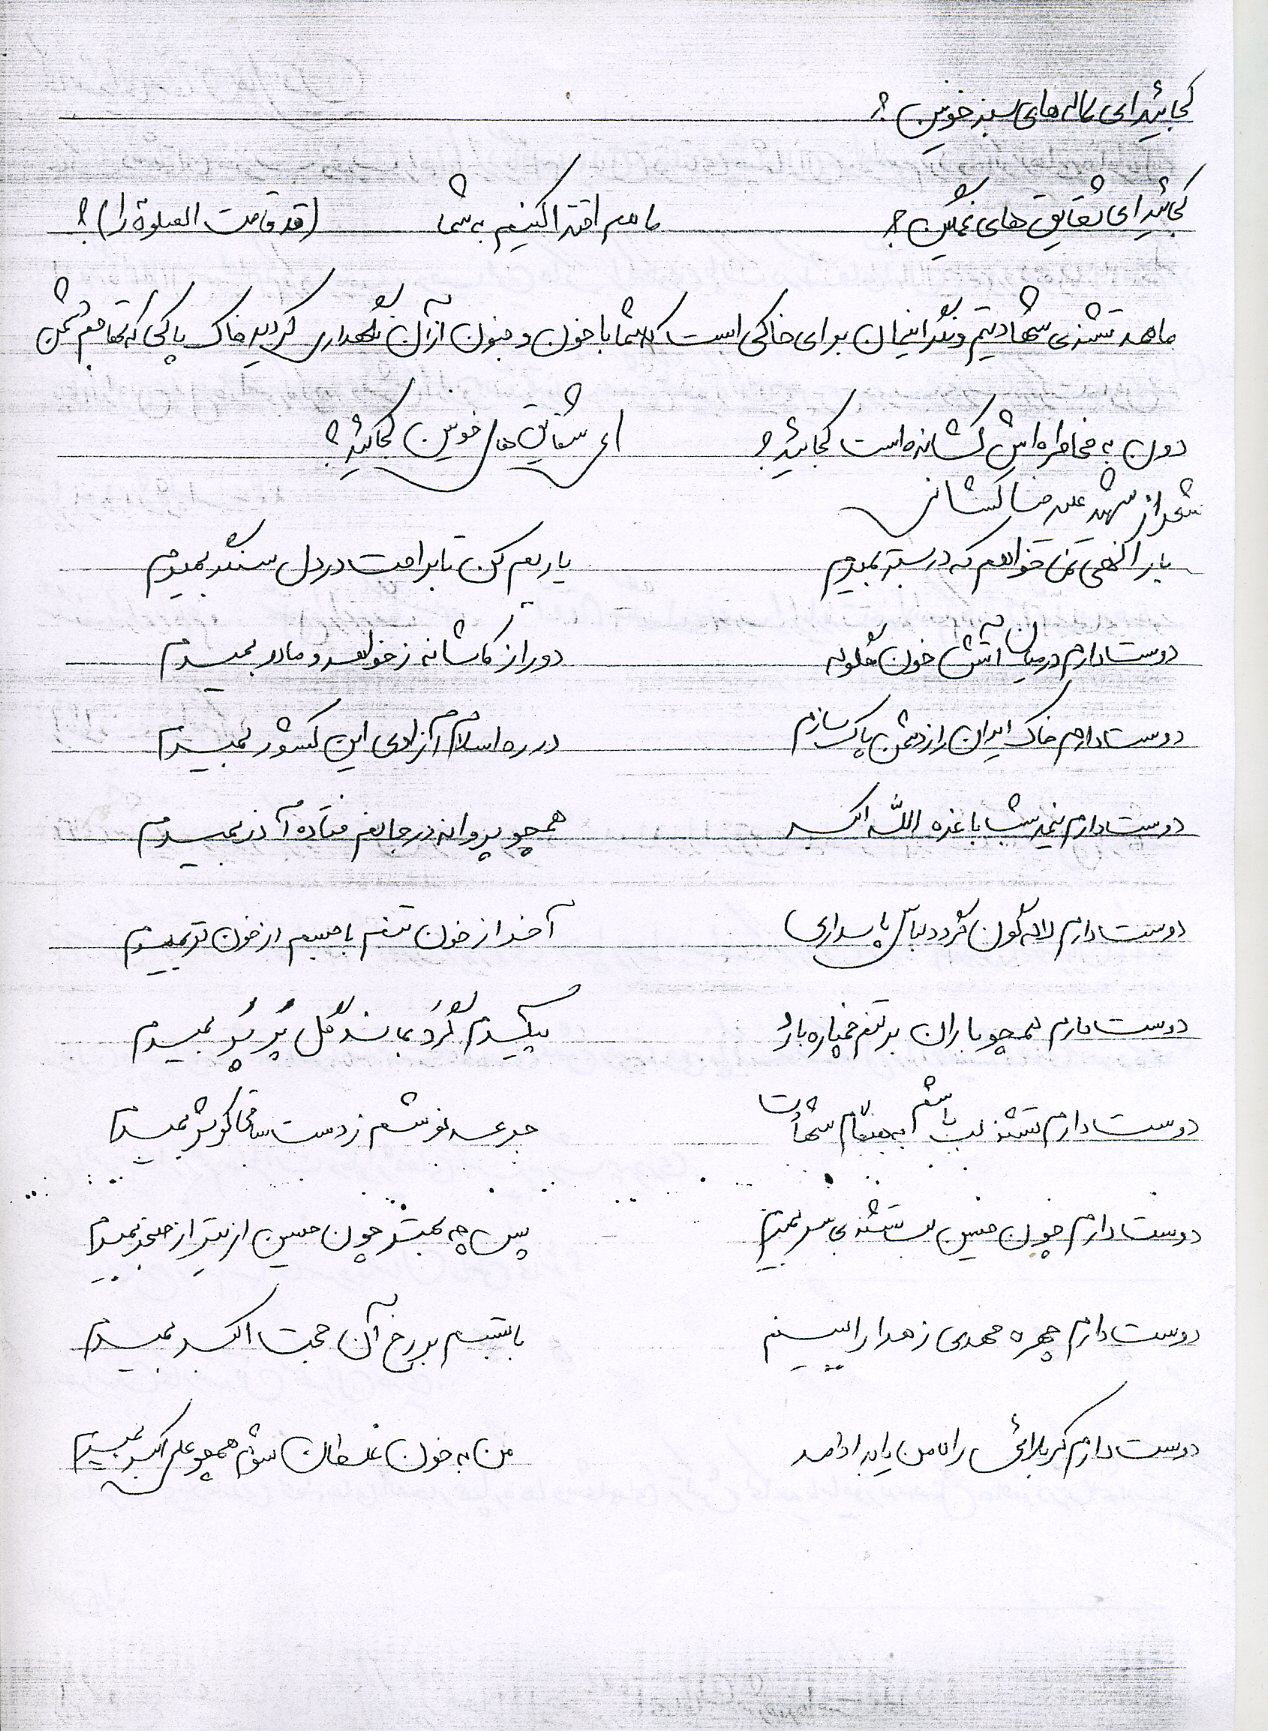 کجائیدای لاله های سبز خونین؟
کجائیدای شقایق های غمگین؟ ما هم اقتدا کنیم به شما (قد قامت الصلوة را)؟
ما هم تشنه‌ی شهادتیم و نگرانیمان برای خاکی است که شما با خون و جنون از آن نگهداری کردید خاک پاکی که تهاجم دشمن
دون به مخاطره اش کشانده است کجائید؟ ای شقایق های خونین کجائید؟
شعر از شهید علیرضا کشانی
بار الهی من نخواهم که در بستر بمیرم یاریم کن تا براهت در دل سنگر بمیرم
دوست دارم در میان آتش و خون گلوله دور از کاشانه ز خواهر و مادر بمیرم
دوست دارم خاک ایران را ز دشمن پاک سازم در ره اسلام آزادی این کشور بمیرم
دوست دارم نیمه شب با غزه الله اکبر همچو پروانه در جا نعم فتاده آذر بمیرم
دوست دارم لاله گون گردد لباس پاسداری آخر از خون تنم با جسم از خون تر بمیرم
دوست دارم همچو باران بر تنم خمپاره بارد پیکرم گردد بمانند گل پرپر بمیرم
دوست دارم تشنه لب باشم به هنگام شهادت جرعه نوشم ز دست ساقی کوثر بمیرم
دوست دارم چون حسین لب تشنه بی سر بمیرم پس چه بهتر چون حسین از تیر از خنجر بمیرم
دوست دارم چهره مهدی زهرا را ببینم با تبسم بر رخ آن حجت اکبر بمیرم
دوست دارم کربلائی را من یابد ادامه من به خون غلطان شوم همچو علی اکبر بمیرم